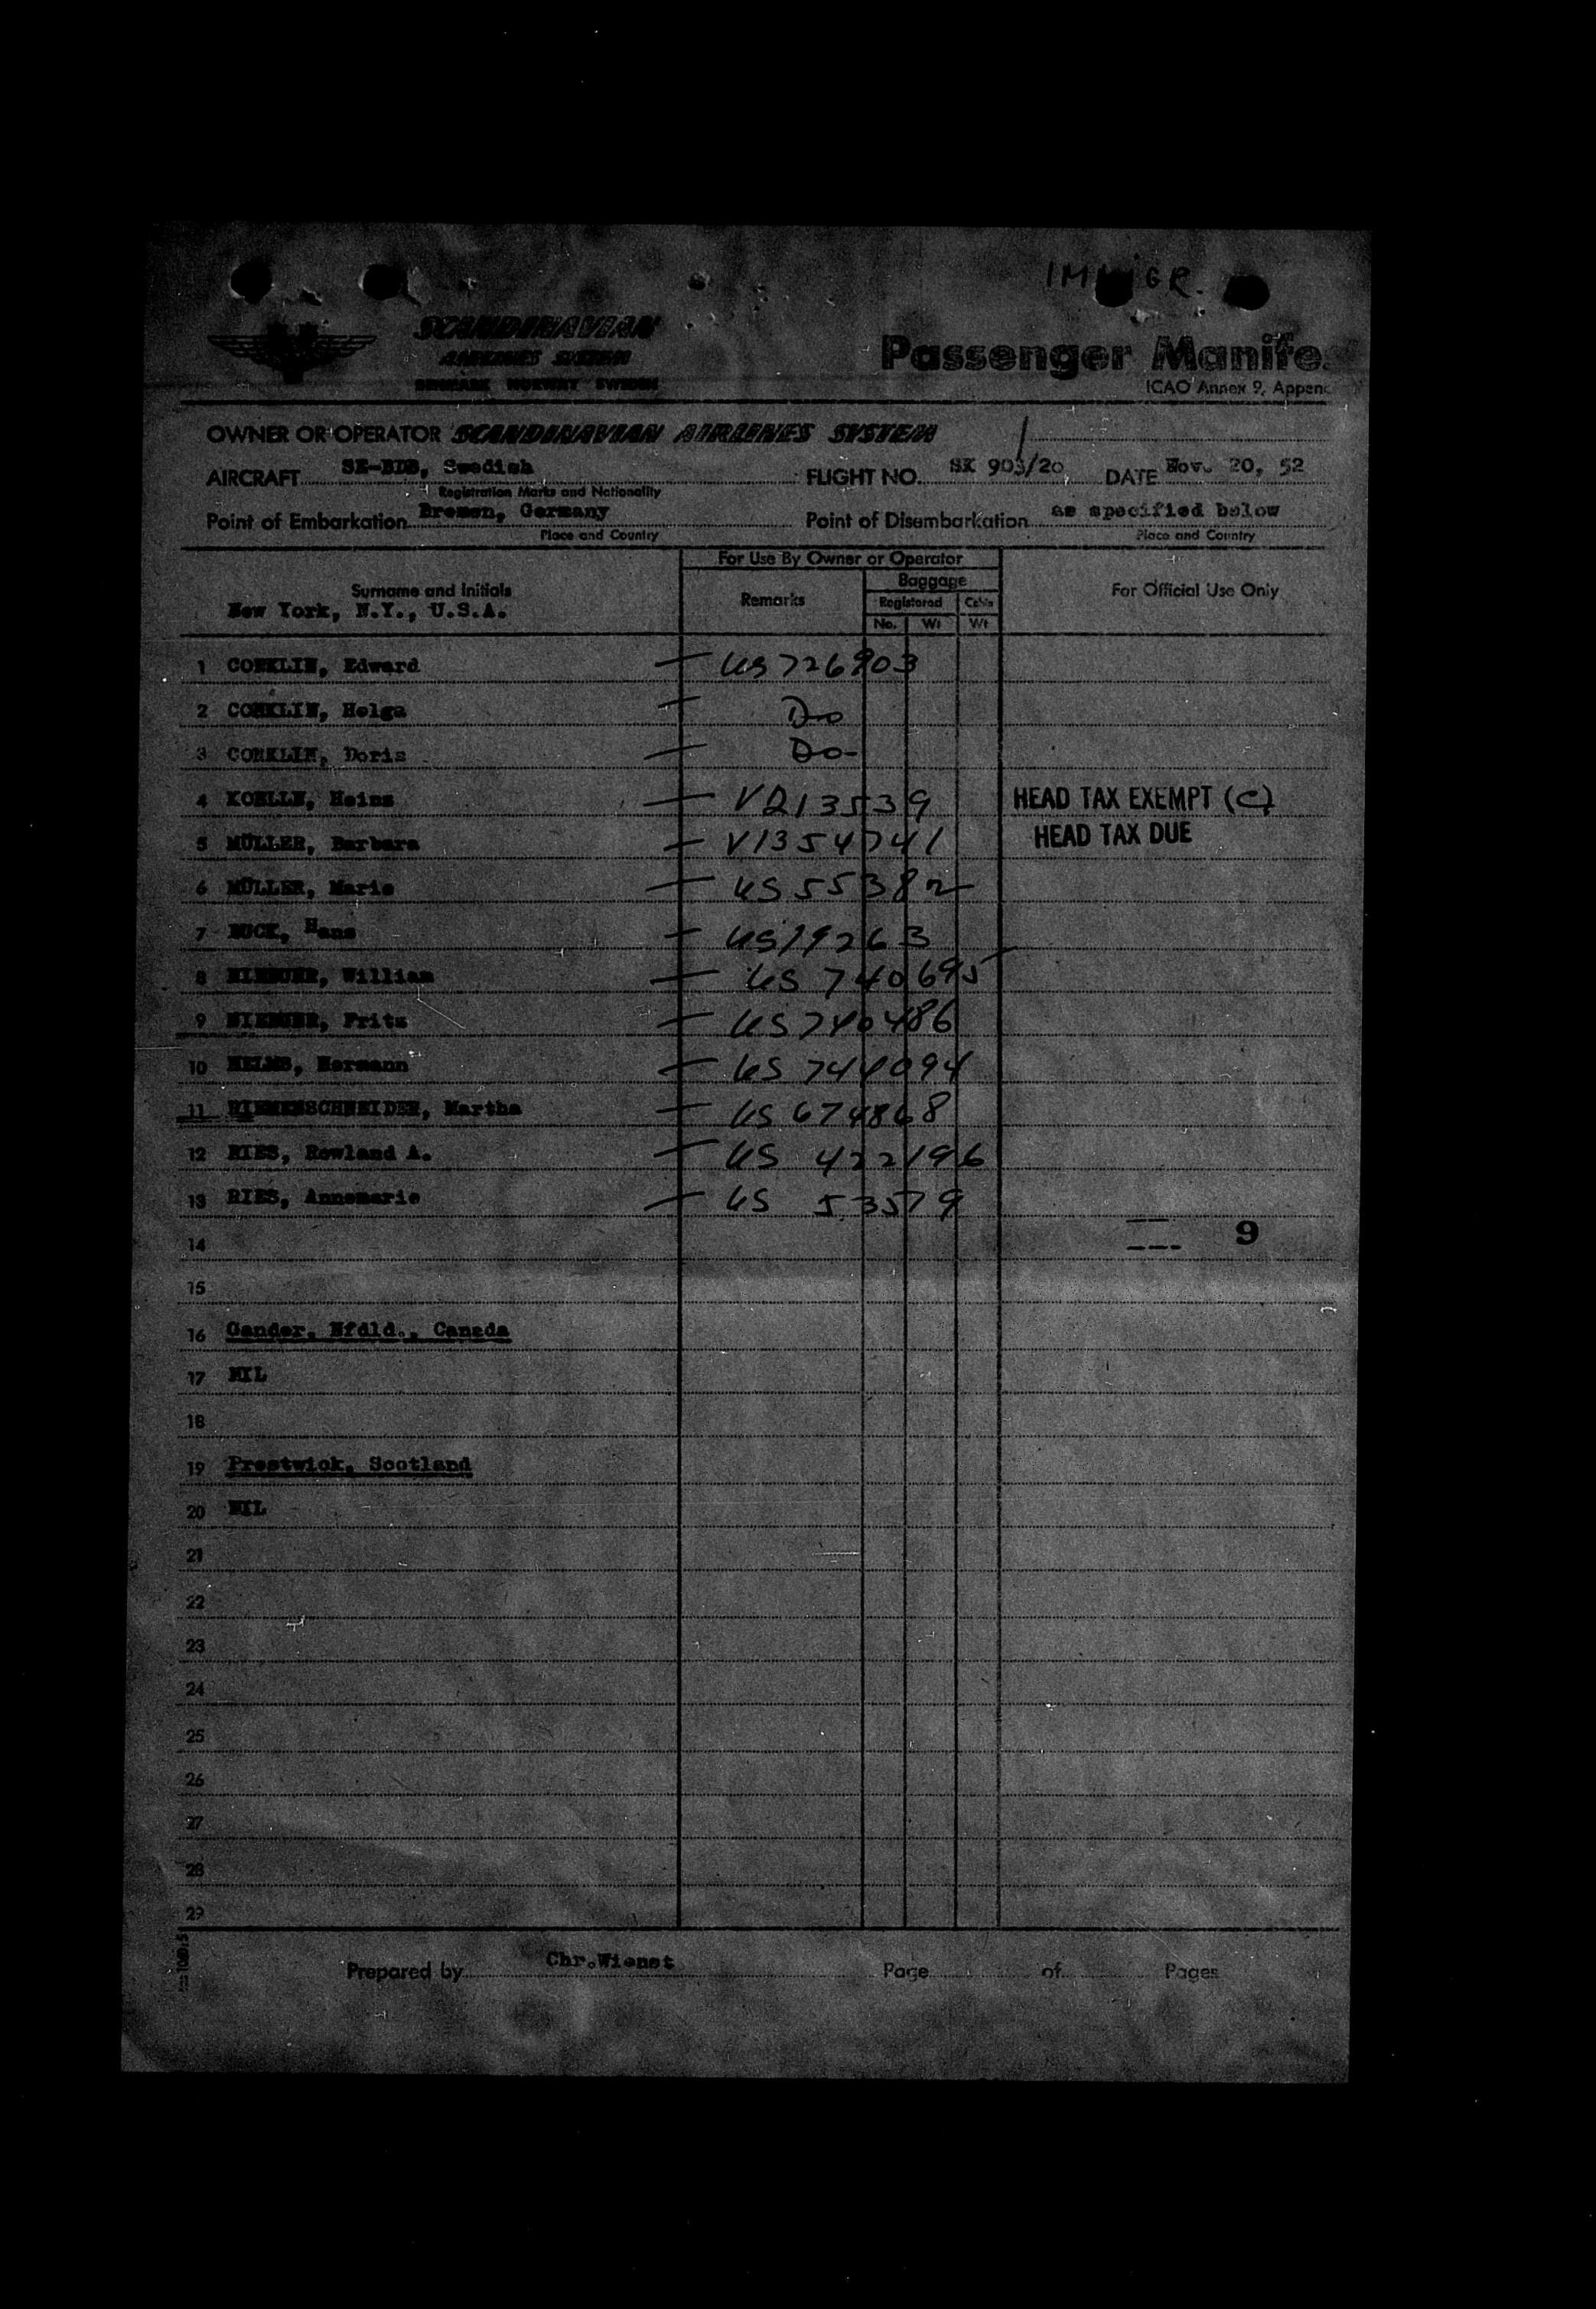 IMMIGR.
SCANDINAVIAN
AIRLINES SYSTEM
DENMARK NORWAY SWEDEN
Passenger Manife
ICAO Annex 9, Appen
OWNER OR OPERATOR SCANDINAVIAN AIRLINES SYSTEM
AIRCRAFT SE-BDB, Swedish FLIGHT NO. SK 903/20 DATE Nov. 20, 52
Registration Marks and Nationality
Point of Embarkation Bremen, Germany Point of Disembarkation as specified below
Place and Country Place and Country
For Use By Owner or Operator
Surname and Initials Remarks Baggage For Official Use Only
New York, N.Y., U.S.A. Registered Cabin
No. Wt Wt
1 CONKLIN, Edward US 726903
2 CONKLIN, Helga Do
3 CONKLIN, Doris Do
4 KOELLN, Heinz V213539 HEAD TAX EXEMPT (C)
5 MÜLLER, Barbara V1354741 HEAD TAX DUE
6 MÜLLER, Marie US 55382
7 BUCK, Hans US 19263
8 William US 740695
9 Fritz US 740486
10 HELMS, Hermann US 744094
11 RIEMENSCHNEIDER, Martha US 674868
12 RIES, Rowland A. US 422196
13 RIES, Annemarie US 53579
14 9
15
16 Gander, Nfdld., Canada
17 NIL
18
19 Prestwick, Scotland
20 NIL
21
22
23
24
25
26
27
28
29
Prepared by Chr.Wienet Page of Pages